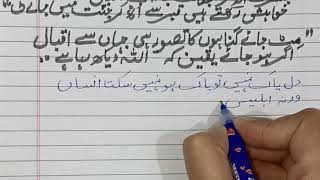 خواہش رکھتے ہیں قبر سے اٹھ کر جنت میں جانے کی"
"مِٹ جائے گناہوں کا تصور ہی جہاں سے اقبال
اگر ہو جائے یقین کہ اللہ دیکھ رہا ہے۔۔
دل پاک نہیں تو پاک ہو نہیں سکتا انساں
ورنہ ابلیس